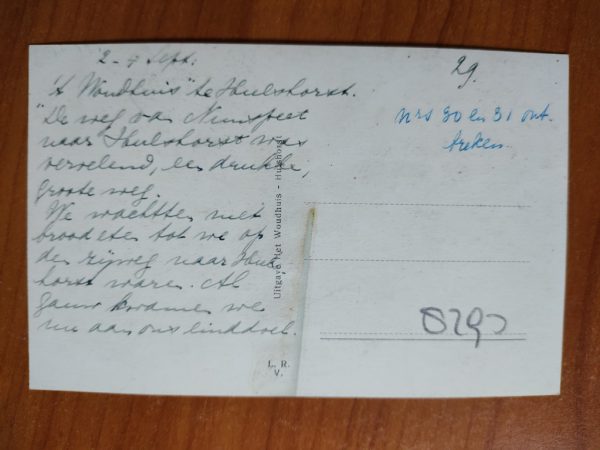 2-4 Sept.
't Woudhuis" te Hulshorst.
"De weg van Nunspeet
naar Hulshorst was
vervelend, een drukke,
groote weg.
We wachtten met
brood eten tot we op
den rijweg naar Huls
horst waren. Al
gauw kwamen we
nu aan ons einddoel.
29.
nrs 30 en 31 ont-
breken.
Uitgave Het Woudhuis - Hulshorst
L. R.
V.